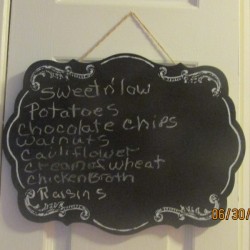 Sweet n' low
Potatoes
Chocolate chips
Walnuts
Cauliflower
cream of wheat
Chicken Broth
Raisins
86/30/